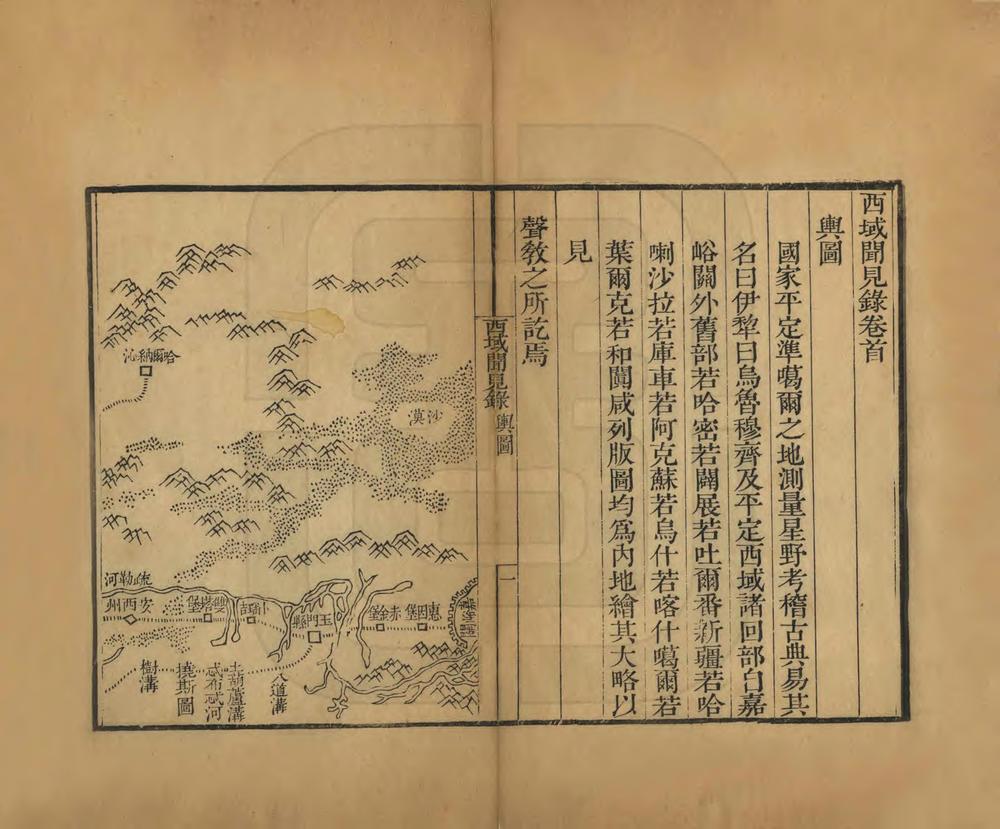 西域聞見錄卷首
輿圖
國家平定準噶爾之地測量星野考稽古典易其
名曰伊犂曰烏魯穆齊及平定西域諸回部自嘉
峪關外舊部若哈密若闢展若吐爾番新疆若哈
喇沙拉若庫車若阿克蘇若烏什若喀什噶爾若
葉爾克若和闐咸列版圖均爲內地繪其大略以
見
聲敎之所訖焉
西域聞見錄
輿圖
一
沙漠
哈爾納沁
惠回堡
赤金堡
玉門縣
卜隆吉
雙塔堡
安西州
疏勒河
八道溝
土葫蘆溝
忒布忒河
撓斯圖
樹溝